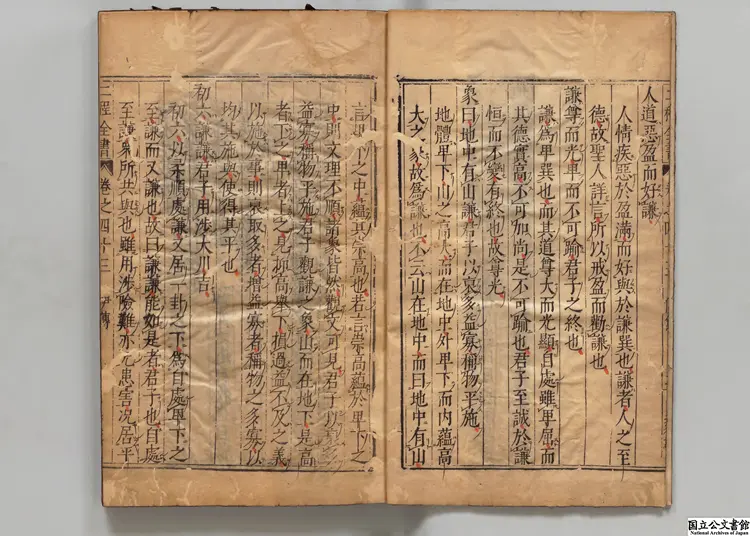 人道惡盈而好謙
人情疾惡於盈滿而好與於謙巽也謙者人之至
德故聖人詳言所以戒盈而勸謙也
謙尊而光卑而不可踰君子之終也
謙爲卑巽也而其道尊大而光顯自處雖卑屈而
其德實高不可加尚是不可踰也君子至誠於謙
恒而不變有終也故尊光
象曰地中有山謙君子以裒多益寡稱物平施
地體卑下山之高大而在地中外卑下而内蘊高
大之象故爲謙也不云山在地中而曰地中有山
言卑下之中蘊其崇高也若言崇高蘊於卑下之
中則文理不順諸象皆然觀文可見君子以裒多
益寡稱物平施君子觀謙之象山而在地下是高
者下之卑者上之見抑高舉下損過益不及之義
以施於事則裒取多者增益寡者稱物之多寡以
均其施與使得其平也
初六謙謙君子用涉大川吉
初六以柔順處謙又居一卦之下爲自處卑下之
至謙而又謙也故曰謙謙能如是者君子也自處
至謙衆所共與也雖用涉險難亦无患害况居平
二程全書 卷之四十三
国立公文書館
National Archives of Japan